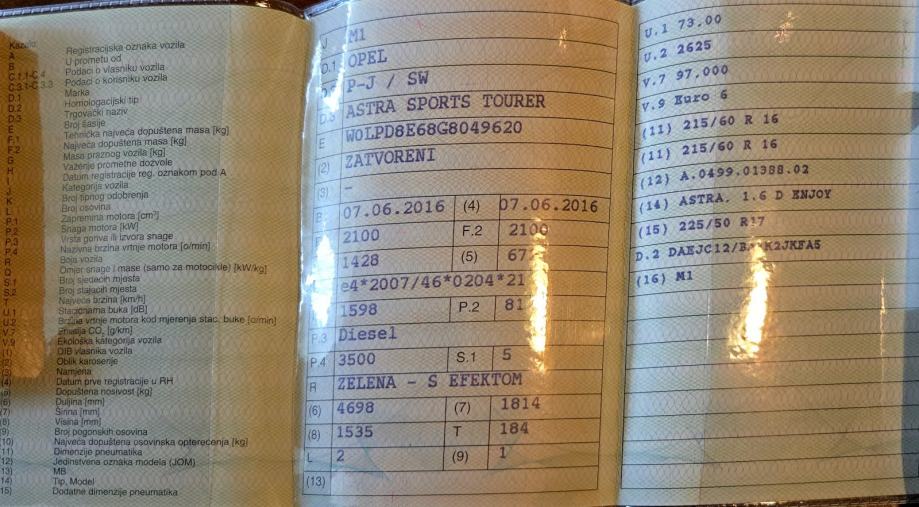 Kazalo:
A Registracijska oznaka vozila
B U prometu od
C.1.1-C.4 Podaci o vlasniku vozila
C.3.1-C.3.3 Podaci o korisniku vozila
D.1 Marka
D.2 Homologacijski tip
D.3 Trgovački naziv
E Broj šasije
F.1 Tehnička najveća dopuštena masa [kg]
F.2 Najveća dopuštena masa [kg]
G Masa praznog vozila [kg]
H Važenje prometne dozvole
I Datum registracije reg. oznakom pod A
J Kategorija vozila
K Broj tipnog odobrenja
L Broj osovina
P.1 Zapremina motora [cm³]
P.2 Snaga motora [kW]
P.3 Vrsta goriva ili izvora snage
P.4 Nazivna brzina vrtnje motora [o/min]
R Boja vozila
Q Omjer snage i mase (samo za motocikle) [kW/kg]
S.1 Broj sjedećih mjesta
S.2 Broj stajaćih mjesta
T Najveća brzina [km/h]
U.1 Stacionarna buka [dB]
U.2 Brzina vrtnje motora kod mjerenja stac. buke [o/min]
V.7 Emisija CO₂ [g/km]
V.9 Ekološka kategorija vozila
(1) OIB vlasnika vozila
(2) Oblik karoserije
(3) Namjena
(4) Datum prve registracije u RH
(5) Dopuštena nosivost [kg]
(6) Duljina [mm]
(7) Širina [mm]
(8) Visina [mm]
(9) Broj pogonskih osovina
(10) Najveća dopuštena osovinska opterećenja [kg]
(11) Dimenzije pneumatika
(12) Jedinstvena oznaka modela (JOM)
(13) MB
(14) Tip, Model
(15) Dodatne dimenzije pneumatika
J M1
D.1 OPEL
P-J / SW
D.3 ASTRA SPORTS TOURER
E W0LPD8E68G8049620
(2) ZATVORENI
(3) -
B 07.06.2016 (4) 07.06.2016
2100 F.2 2100
1428 (5) 67
e4*2007/46*0204*21
1598 P.2 81
P.3 Diesel
P.4 3500 S.1 5
R ZELENA - S EFEKTOM
(6) 4698 (7) 1814
(8) 1535 T 184
L 2 (9) 1
(13)
U.1 73,00
U.2 2625
V.7 97,000
V.9 Euro 6
(11) 215/60 R 16
(11) 215/60 R 16
(12) A.0499.01388.02
(14) ASTRA. 1.6 D ENJOY
(15) 225/50 R17
D.2
(16) M1